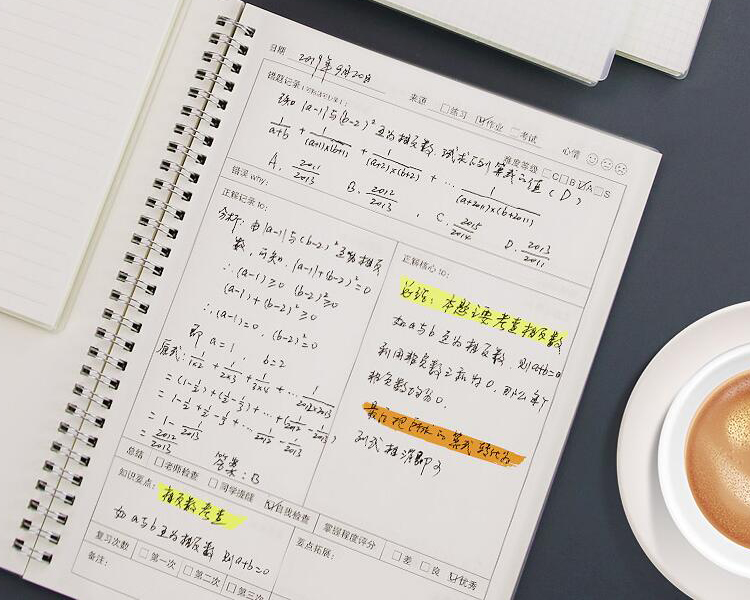 日期 2019年9月20日
来源 □练习 ☑作业 □考试 心情
错题记录
难度等级 □C □B ☑A □S
已知 |a-1| 与 (b-2)² 互为相反数, 试求下列算式之值 (D)
1/(a+b) + 1/((a+1)×(b+1)) + 1/((a+2)×(b+2)) + … 1/((a+2011)×(b+2011))
A. 2011/2013 B. 2012/2013 C. 2015/2014 D. 2013/2011
错误 why:
正解记录 to:
分析: 由 |a-1| 与 (b-2)² 互为相反
数, 可知. |a-1|+(b-2)²=0
∴ (a-1)≥0 (b-2)²≥0
(a-1)+(b-2)²≥0
∴ (a-1)=0, (b-2)²=0
即 a=1, b=2
原式: 1/(1×2) + 1/(2×3) + 1/(3×4) + … 1/(2012×2013)
= (1-1/2)+(1/2-1/3)+…+(1/2012-1/2013)
= 1-1/2+1/2-1/3+…1/2012-1/2013
= 1-1/2013
= 2012/2013
答案: B
正解核心 to:
总结: 本题主要考查相反数
如 a与b 互为相反数, 则 a+b=0
利用非负数之和为0, 那么每个
非负数均为0.
最后把所求的算式转化为
列式相消即可
总结 □老师检查 □同学连线 ☑自我检查
掌握程度评分 □差 □良 ☑优秀
知识要点: 相反数考查
如 a与b 互为相反数 则 a+b=0
要点拓展:
复习次数 □第一次 □第二次 □第三次
备注: